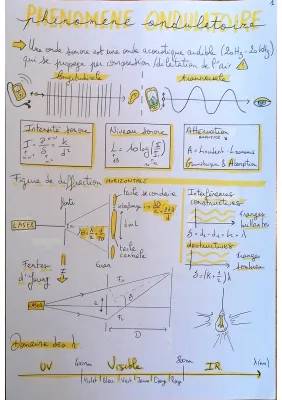 PHENOMENE ONDULATOIRE
phénomène ondulatoire
1
→ Une onde sonore est une onde acoustique audible (20Hz-20kHz)
qui se propage par compression/dilatation de l'air
Longitudinale
Transversale
Intensité sonore
I = P/S = k/d²
Niveau sonore
L = 10 log(I/I₀)
dB
Atténuation
A = Lincident - Ltransmis
Géométrique & Absorption
Figure de diffraction HORIZONTALE
fente
tache secondaire
tache
centrale
LASER
Ecran
Interférences
constructives
franges
brillantes
destructives
franges
sombres
δ = (k + 1/2) λ
Fentes
d'Young
LASER
D
Domaine des λ
UV
400nm
Visible
800nm
IR
λ(nm)
Violet
Bleu
Vert
Jaune
Orange
Rouge